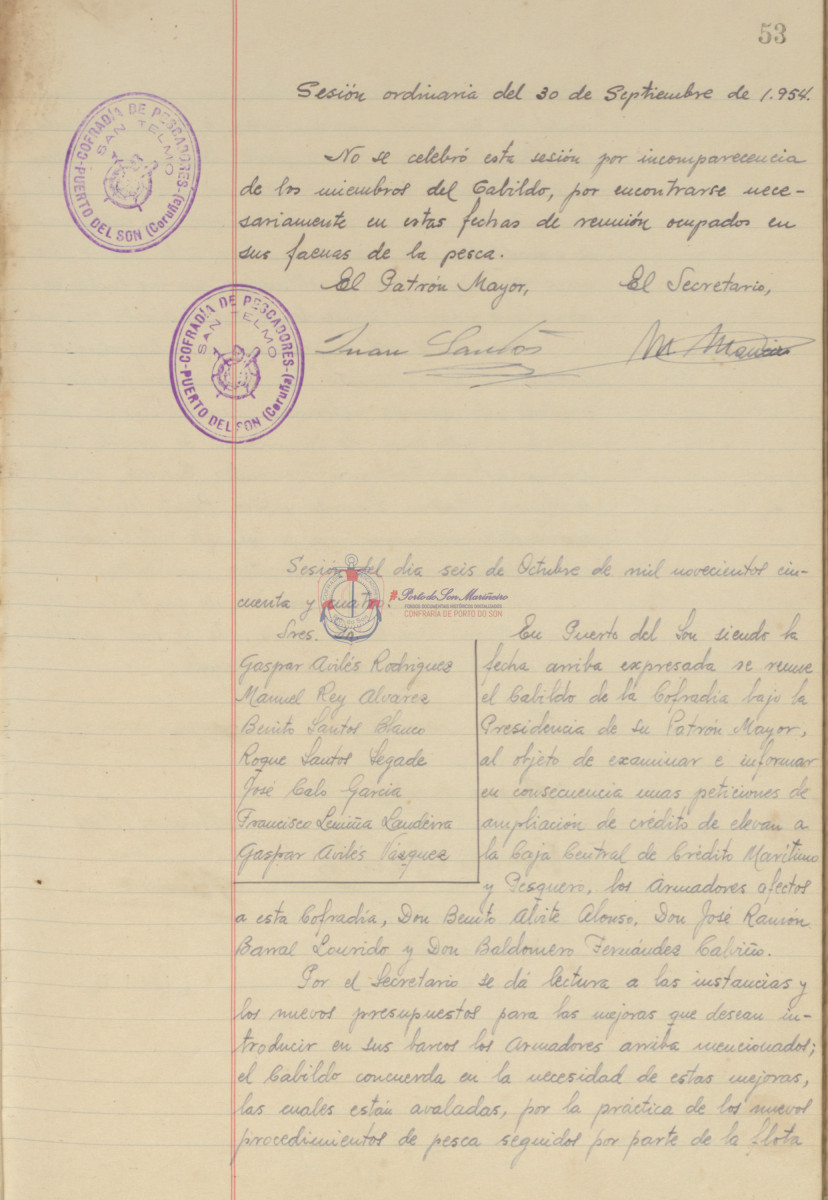 53
Sesión ordinaria del 30 de Septiembre de 1.954.
COFRADÍA DE PESCADORES
SAN TELMO
PUERTO DEL SON (Coruña)
No se celebró esta sesión por incomparecencia
de los miembros del Cabildo, por encontrarse nece-
sariamente en estas fechas de reunión ocupados en
sus faenas de la pesca.
El Patrón Mayor, El Secretario,
COFRADÍA DE PESCADORES
SAN TELMO
PUERTO DEL SON (Coruña)
Juan Santos
Sesión del dia seis de Octubre de mil novecientos cin-
cuenta y cuatro.
#PortodeSonMariñeiro
FONDOS DOCUMENTAIS HISTÓRICOS DIXITALIZADOS
CONFRARÍA DE PORTO DO SON
Sres.
Gaspar Avilés Rodriguez
Manuel Rey Alvarez
Benito Santos Blanco
Roque Santos Segade
José Calo Garcia
Francisco Lemiña Landeira
Gaspar Avilés Vázquez
En Puerto del Son siendo la
fecha arriba expresada se reune
el Cabildo de la Cofradía bajo la
Presidencia de su Patrón Mayor,
al objeto de examinar e informar
en consecuencia unas peticiones de
ampliación de crédito de elevan a
la Caja Central de Crédito Marítimo
y Pesquero, los Armadores afectos
a esta Cofradía, Don Benito Alvite Alonso, Don José Ramón
Barral Lourido y Don Baldomero Fernández Calviño.
Por el Secretario se dá lectura a las instancias y
los nuevos presupuestos para las mejoras que desean in-
troducir en sus barcos los Armadores arriba mencionados;
el Cabildo concuerda en la necesidad de estas mejoras,
las cuales están avaladas, por la práctica de los nuevos
procedimientos de pesca seguidos por parte de la flota